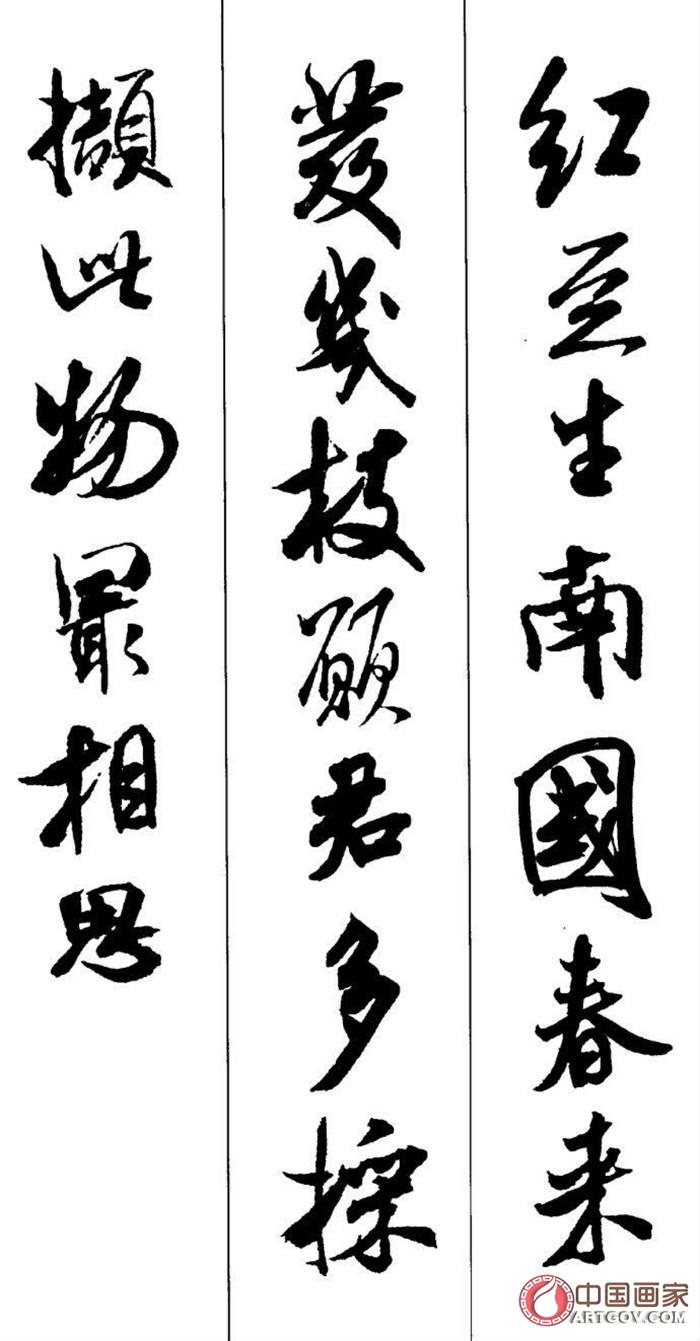 红豆生南國春来
發幾枝願君多採
擷此物最相思
中国画家
ARTGOV.COM